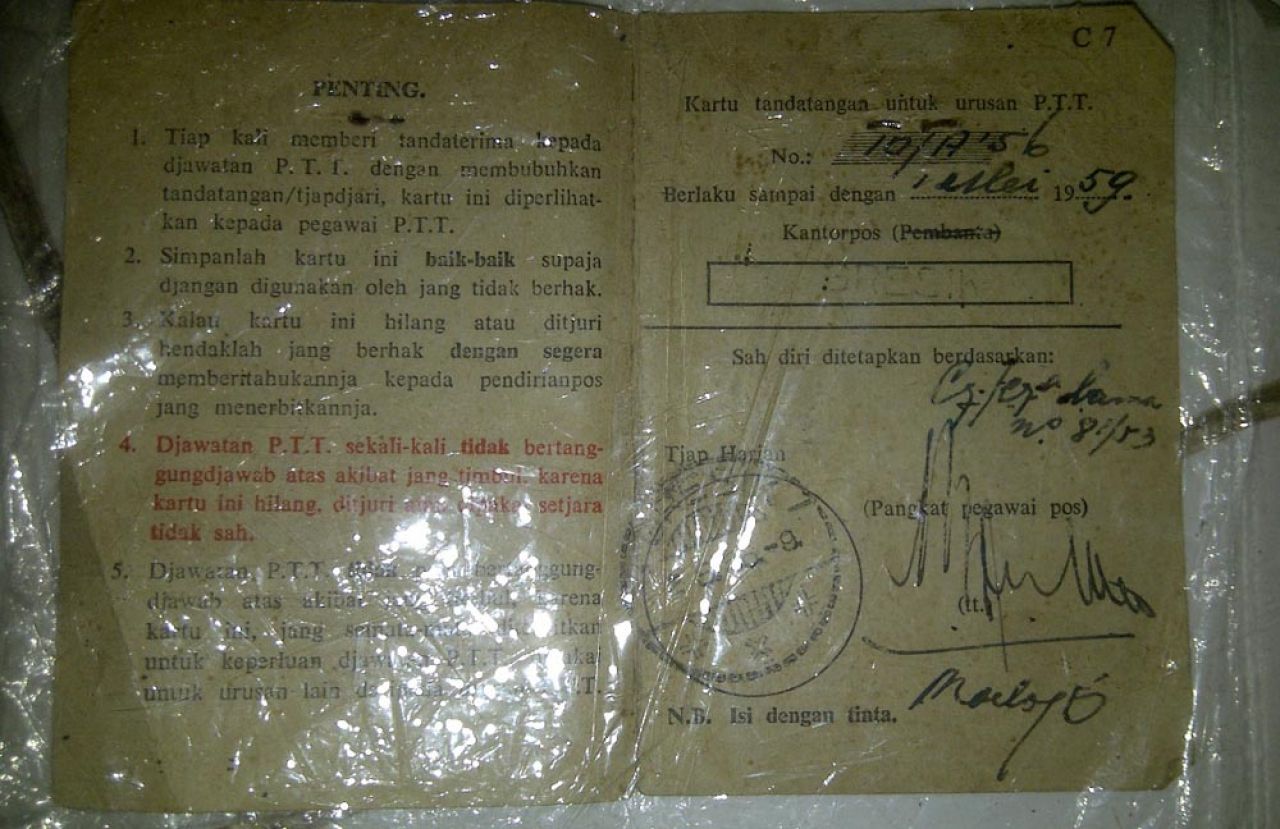 PENTING.
1. Tiap kali memberi tandaterima kepada
djawatan P.T.T. dengan membubuhkan
tandatangan/tjapdjari, kartu ini diperlihat-
kan kepada pegawai P.T.T.
2. Simpanlah kartu ini baik-baik supaja
djangan digunakan oleh jang tidak berhak.
3. Kalau kartu ini hilang atau ditjuri
hendaklah jang berhak dengan segera
memberitahukannja kepada pendirianpos
jang menerbitkannja.
4. Djawatan P.T.T. sekali-kali tidak bertang-
gungdjawab atas akibat jang timbul, karena
kartu ini hilang, ditjuri atau dipakai setjara
tidak sah.
5. Djawatan P.T.T. tidak bertanggung-
djawab atas akibat jang timbul, karena
kartu ini, jang diterbitkan
untuk keperluan djawatan P.T.T.
untuk urusan lain
C 7
Kartu tandatangan untuk urusan P.T.T.
No.:
Berlaku sampai dengan 1 Mei 1959.
Kantorpos (Pembantu)
GRESIK
Sah diri ditetapkan berdasarkan:
no. 81/53
Tjap Harian
(Pangkat pegawai pos)
(tt.)
N.B. Isi dengan tinta.